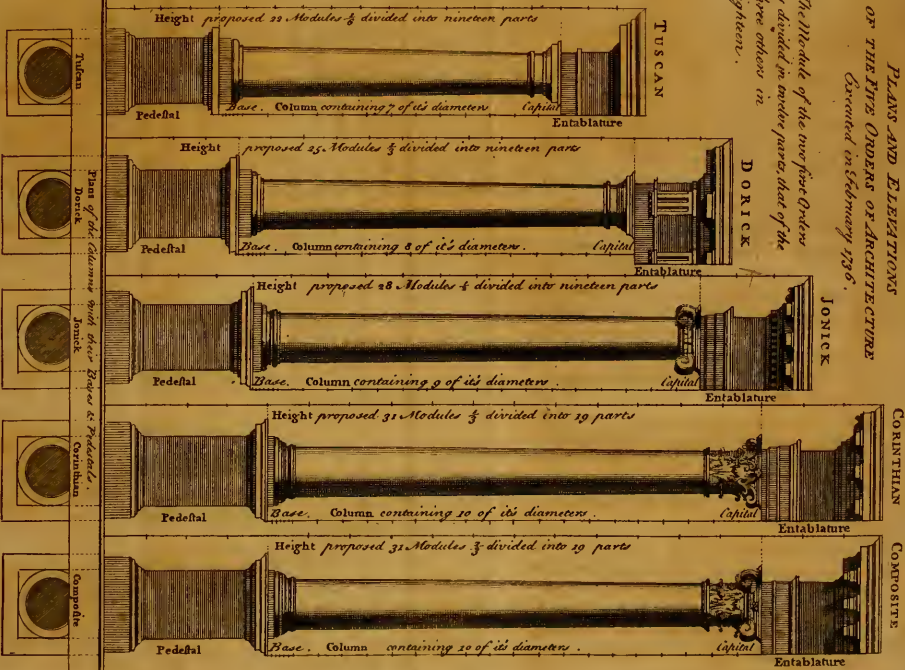 PLANS AND ELEVATIONS
OF THE FIVE ORDERS OF ARCHITECTURE
Executed in February 1736.
The Module of the two first Orders
divided in twelve parts, that of the
three others in
eighteen.
TUSCAN
Height proposed 22 Modules ⅙ divided into nineteen parts
Pedeſtal
Base. Column containing 7 of it's diameters
Capital
Entablature
DORICK
Height proposed 25 Modules ⅓ divided into nineteen parts
Pedeſtal
Base. Column containing 8 of it's diameters.
Capital
Entablature
JONICK
Height proposed 28 Modules ½ divided into nineteen parts
Pedeſtal
Base. Column containing 9 of it's diameters.
Capital
Entablature
CORINTHIAN
Height proposed 31 Modules ⅔ divided into 19 parts
Pedeſtal
Base. Column containing 10 of it's diameters.
Capital
Entablature
COMPOSITE
Height proposed 31 Modules ⅔ divided into 19 parts
Pedeſtal
Base. Column containing 10 of it's diameters.
Capital
Entablature
Plans of the Columns with their Bases & Pedestals.
Tuſcan
Dorick
Jonick
Corinthian
Compoſite